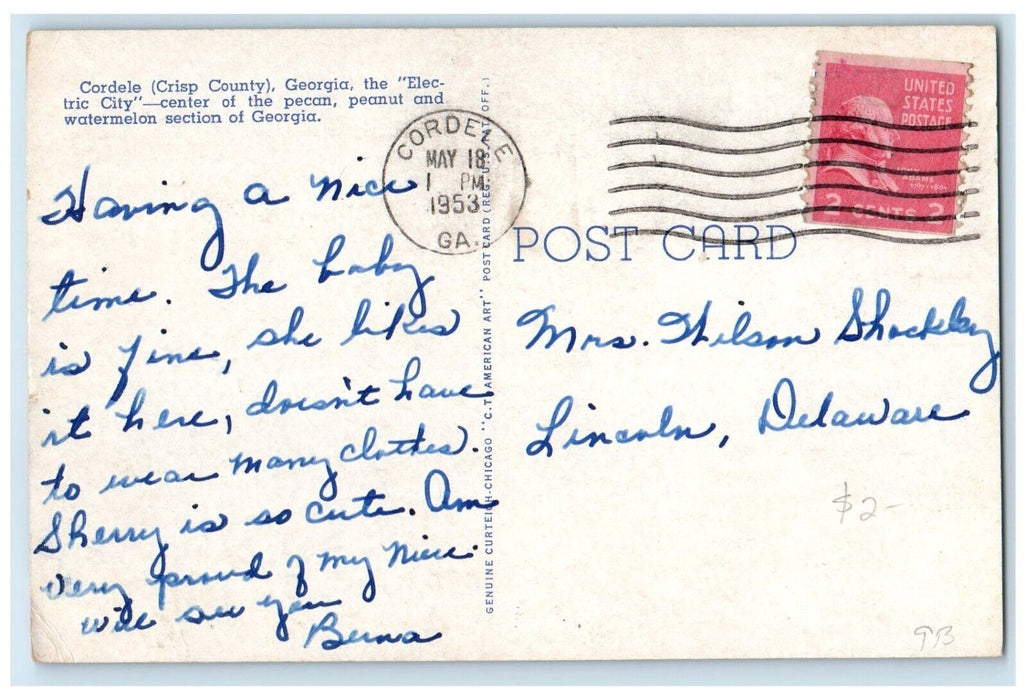 Cordele (Crisp County), Georgia, the "Elec-
tric City"—center of the pecan, peanut and
watermelon section of Georgia.
Having a nice
time. The baby
is fine, she likes
it here, doesn't have
to wear many clothes.
Sherry is so cute. Am
very proud of my niece.
will see you
Berna
GENUINE CURTEICH-CHICAGO "C.T. AMERICAN ART" POST CARD (REG. U.S. PAT. OFF.)
CORDELE
MAY 18
1 PM
1953
GA.
UNITED
STATES
POSTAGE
ADAMS
1797-1801
2 CENTS 2
POST CARD
Mrs. Wilson Shockley
Lincoln, Delaware
$2-